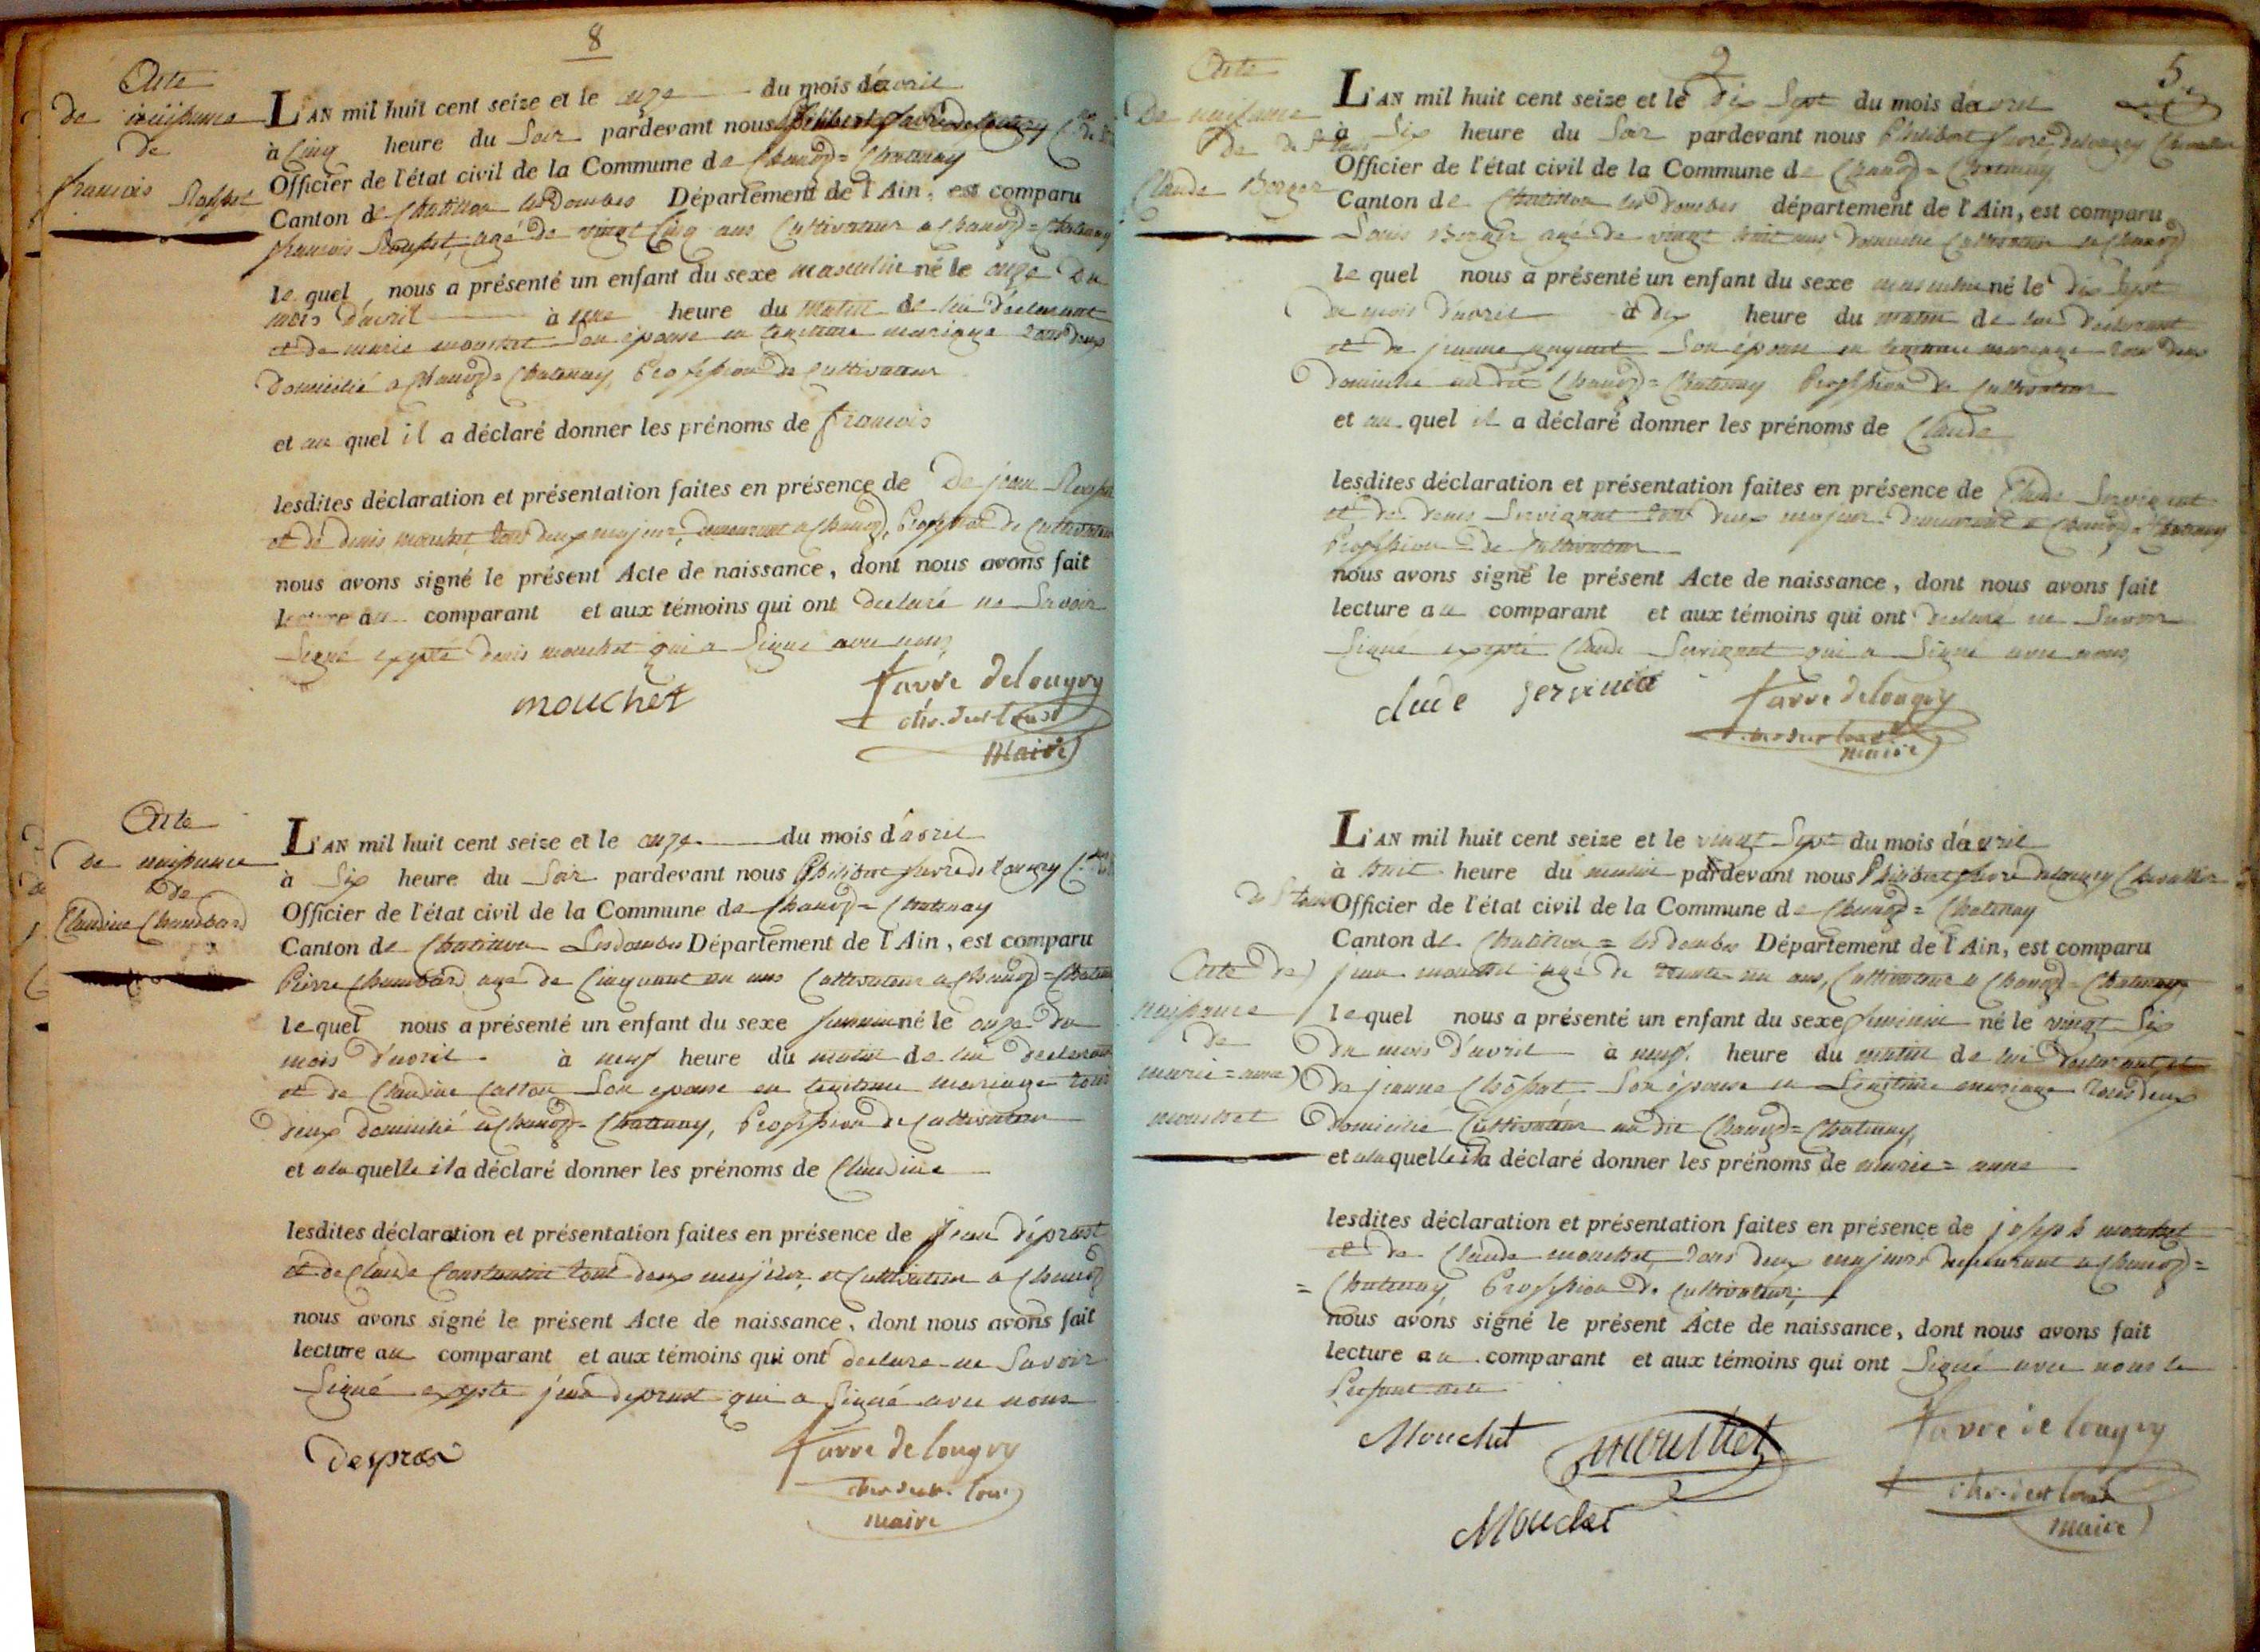 8
Acte
de naissance
de
françois
L'AN mil huit cent seize et le onze du mois d'avril
à Cinq heure du Soir pardevant nous Philibert favre de longry
Officier de l'état civil de la Commune de Chanoz=Chatenay
Canton de Chatillon les Dombes Département de l'Ain, est comparu
françois agé de vingt Cinq ans Cultivateur a Chanoz=Chatenay
le quel nous a présenté un enfant du sexe masculin né le onze Du
mois d'avril à une heure du matin de lui déclarant
et de marie mouchet Son épouse en legitime mariage tous deux
Domicilié a Chanoz=Chatenay, Profession de Cultivateur
et au quel il a déclaré donner les prénoms de françois
lesdites déclaration et présentation faites en présence de De jean
et de denis mouchet tous deux majeur, demeurant a Chanoz, Profession de Cultivateur
nous avons signé le présent Acte de naissance, dont nous avons fait
lecture au comparant et aux témoins qui ont declaré ne Savoir
Signé expté denis mouchet qui a Signé avec nous
mouchet
favre delongry
maire
Acte
de naissance
de
Claudine Chambard
L'AN mil huit cent seize et le onze du mois d'avril
à Six heure du Soir pardevant nous Philibert favre de longry
Officier de l'état civil de la Commune de Chanoz=Chatenay
Canton de Chatillon Les dombes Département de l'Ain, est comparu
Pierre Chambard agé de Cinquant un ans Cultivateur a Chanoz=Chatenay
le quel nous a présenté un enfant du sexe feminin né le onze du
mois d'avril à neuf heure du matin de lui declarant
et de Claudine Son epouse en legitime mariage tous
deux domicilié a Chanoz=Chatenay, Profession de Cultivateur
et a la quelle il a déclaré donner les prénoms de Claudine
lesdites déclaration et présentation faites en présence de jean
et de Claude Constantin tous deux majeur, et Cultivateur a Chanoz
nous avons signé le présent Acte de naissance, dont nous avons fait
lecture au comparant et aux témoins qui ont declare ne Savoir
Signé expte jean qui a Signé avec nous
favre de longry
maire
9
5
Acte
De naissance
de
Claude Berger
L'AN mil huit cent seize et le Dix Sept du mois d'avril
à Six heure du Soir pardevant nous Philibert favre delongry Chevallier
de St Louis
Officier de l'état civil de la Commune de Chanoz=Chatenay
Canton de Chatillon les dombes département de l'Ain, est comparu
Louis Berger agé de vingt huit ans, domicilié Cultivateur a Chanoz
le quel nous a présenté un enfant du sexe masculin né le dix Sept
du mois d'avril à dix heure du matin de lui déclarant
et de jeanne Son épouse en legitime mariage tous deux
domicilié au dit Chanoz=Chatenay Profession de Cultivateur
et au quel il a déclaré donner les prénoms de Claude
lesdites déclaration et présentation faites en présence de Claude Servignat
et de denis Servignat tous deux majeur demeurant a Chanoz=Chatenay
Profession de Cultivateur
nous avons signé le présent Acte de naissance, dont nous avons fait
lecture au comparant et aux témoins qui ont declaré ne Savoir
Signé expté Claude Servignat qui a Signé avec nous
favre delongry
maire
de St Louis
Acte de
naissance
de
marie=anne
mouchet
L'AN mil huit cent seize et le vingt Sept du mois d'avril
à huit heure du matin pardevant nous Philibert favre delongry Chevallier
Officier de l'état civil de la Commune de Chanoz=Chatenay
Canton de Chatillon=les dombes Département de l'Ain, est comparu
jean mouchet agé de trente un ans, Cultivateur a Chanoz=Chatenay,
le quel nous a présenté un enfant du sexe feminin né le vingt Six
du mois d'avril à neuf heure du matin de lui declarant et
de jeanne Son épouse en Legitime mariage tous deux
domicilié Cultivateur au dit Chanoz=Chatenay,
et a la quelle il a déclaré donner les prénoms de marie=anne
lesdites déclaration et présentation faites en présence de joseph mouchet
et de Claude mouchet, tous deux majeurs demeurant a Chanoz=
=Chatenay, Profession de Cultivateur,
nous avons signé le présent Acte de naissance, dont nous avons fait
lecture au comparant et aux témoins qui ont Signé avec nous le
Présent acte
Mouchet
mouchet
favre de longry
maire
Mouchet